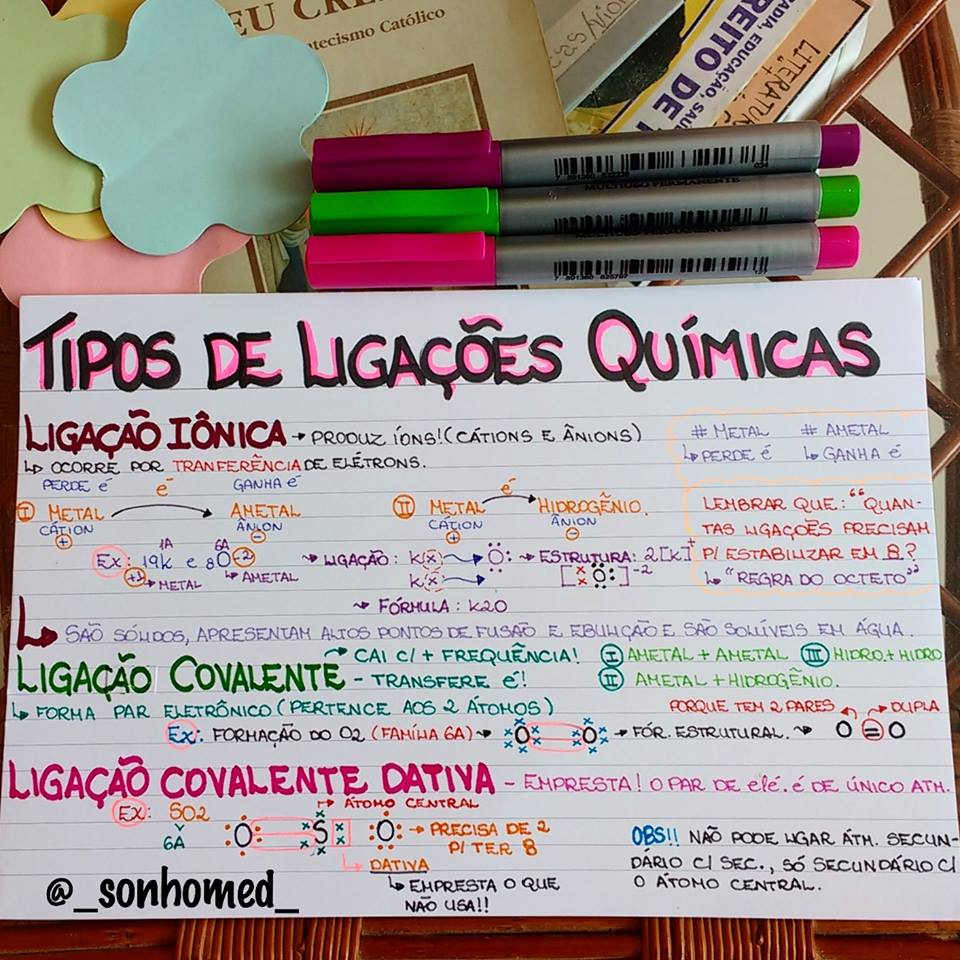 EU CRE
tecismo Católico
REITO DE
ADIA, EDUCAÇÃO, SAÚ
LITERATUR
034
7 891360
MULTIUSO PERMANENTE
127
7 891360
TIPOS DE LIGAÇÕES QUÍMICAS
LIGAÇÃO IÔNICA → PRODUZ ÍONS! (CÁTIONS E ÂNIONS)
↳ OCORRE POR TRANFERÊNCIA DE ELÉTRONS.
# METAL # AMETAL
↳ PERDE é ↳ GANHA é
PERDE é é GANHA é
I METAL → AMETAL
CÁTION ÂNION
+ -
II METAL é → HIDROGÊNIO.
CÁTION ÂNION
+ -
LEMBRAR QUE: "QUAN-
TAS LIGAÇÕES PRECISAM
P/ ESTABILIZAR EM 8?
↳ "REGRA DO OCTETO"
1A 6A
Ex: 19K e 8O -2 ⇝ LIGAÇÃO: K(x) → :Ö: ⇝ ESTRUTURA: 2[K]+
+1 → METAL ↳ AMETAL K(x) → [:Ö:]-2
⇝ FÓRMULA: K2O
↳ SÃO SÓLIDOS, APRESENTAM ALTOS PONTOS DE FUSÃO E EBULIÇÃO E SÃO SOLÚVEIS EM ÁGUA.
LIGAÇÃO COVALENTE ⇝ CAI C/ + FREQUÊNCIA!
- TRANSFERE é!
I AMETAL + AMETAL III HIDRO. + HIDRO
II AMETAL + HIDROGÊNIO.
↳ FORMA PAR ELETRÔNICO (PERTENCE AOS 2 ÁTOMOS)
PORQUE TEM 2 PARES ↗ DUPLA
Ex: FORMAÇÃO DO O2 (FAMÍLIA 6A) ⇝ O O → FÓR. ESTRUTURAL. ⇝ O = O
LIGAÇÃO COVALENTE DATIVA - EMPRESTA! O PAR DE elé. É DE ÚNICO ATM.
Ex: SO2
6A
↦ ÁTOMO CENTRAL
O S O → PRECISA DE 2
P/ TER 8
↳ DATIVA
↳ EMPRESTA O QUE
NÃO USA!!
OBS!! NÃO PODE LIGAR ÁTM. SECUN-
DÁRIO C/ SEC., SÓ SECUNDÁRIO C/
O ÁTOMO CENTRAL.
@_sonhomed_